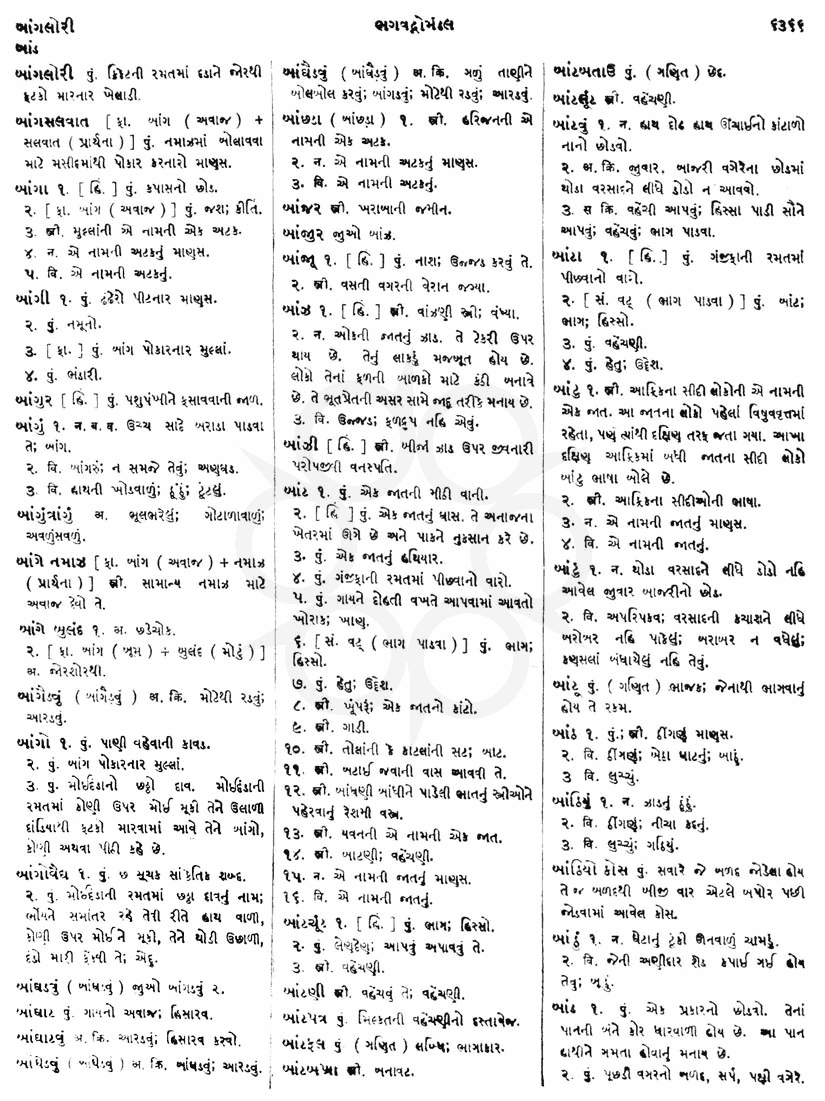 બાંગલોરી
ભગવદ્ગોમંડલ
૬૩૬૬
બાંડ
બાંગલોરી પું. ક્રિકેટની રમતમાં દડાને જોરથી
ફટકો મારનાર ખેલાડી.
બાંગસલવાત [ ફા. બાંગ ( અવાજ ) +
સલવાત ( પ્રાર્થના ) ] પું. નમાઝમાં બોલાવવા
માટે મસીદમાંથી પોકાર કરનારો માણસ.
બાંગા ૧. [ હિં. ] પું. કપાસનો છોડ.
૨. [ ફા. બાંગ ( અવાજ ) ] પું. જશ; કીર્તિ.
૩. સ્ત્રી. મુલ્લાંની એ નામની એક અટક.
૪. ન. એ નામની અટકનું માણસ.
૫. વિ. એ નામની અટકનું.
બાંગી ૧. પું. ઢંઢેરો પીટનાર માણસ.
૨. પું. નમૂનો.
૩. [ ફા. ] પું. બાંગ પોકારનાર મુલ્લાં.
૪. પું. ભંડારી.
બાંગુર [ હિં. ] પું. પશુપંખીને ફસાવવાની જાળ.
બાંગું ૧. ન. બ. વ. ઉચ્ચ સાદે બરાડા પાડવા
તે; બાંગ.
૨. વિ. બાંગરું; ન સમજે તેવું; અણઘડ.
૩. વિ. હાથની ખોડવાળું; ઠૂંઠું; ટૂંટલું.
બાંગુંત્રાંગું અ. ભૂલભરેલું; ગોટાળાવાળું;
અવળુંસવળું.
બાંગે નમાઝ [ ફા. બાંગ ( અવાજ ) + નમાઝ
( પ્રાર્થના ) ] સ્ત્રી. સામાન્ય નમાઝ માટે
અવાજ દેવો તે.
બાંગે બુલંદ ૧. અ. છડેચોક.
૨. [ ફા. બાંગ ( બૂમ ) + બુલંદ ( મોટું ) ]
અ. જોરશોરથી.
બાંગૈડવું ( બાંગૈડ઼વું ) અ. ક્રિ. મોટેથી રડવું;
આરડવું.
બાંગો ૧. પું. પાણી વહેવાની કાવડ.
૨. પું. બાંગ પોકારનાર મુલ્લાં.
૩. પું. મોઈદંડાનો છઠ્ઠો દાવ. મોઈદંડાની
રમતમાં કોણી ઉપર મોઈ મૂકી તેને ઉલાળી
દાંડિયાથી ફટકો મારવામાં આવે તેને બાંગો,
કોણી અથવા પીઠી કહે છે.
બાંગોવૈદ્ય ૧. પું. છ સૂચક સાંકેતિક શબ્દ.
૨. પું. મોઈદંડાની રમતમાં છઠ્ઠા દાવનું નામ;
ભોંયને સમાંતર રહે તેવી રીતે હાથ વાળી,
કોણી ઉપર મોઈને મૂકી, તેને થોડી ઉછાળી,
દંડો મારી ફેંકવી તે; એદૂ.
બાંઘડવું ( બાંઘડ઼વું ) જુઓ બાંગડવું ૨.
બાંઘાટ પું. ગાયનો અવાજ; હિસારવ.
બાંઘાટવું અ. ક્રિ. આરડવું; હિસારવ કરવો.
બાંઘેડવું ( બાંઘેડ઼વું ) અ. ક્રિ. બાંઘડવું; આરડવું.
બાંઘૈડવું ( બાંઘૈડ઼વું ) અ. ક્રિ. ગળું તાણીને
બોલબોલ કરવું; બાંગડવું; મોટેથી રડવું; આરડવું.
બાંછડા ( બાંછડ઼ા ) ૧. સ્ત્રી. હરિજનની એ
નામની એક અટક.
૨. ન. એ નામની અટકનું માણસ.
૩. વિ. એ નામની અટકનું.
બાંજર સ્ત્રી. ખરાબાની જમીન.
બાંજીર જુઓ બાંઝ.
બાંજૂ ૧. [ હિં. ] પું. નાશ; ઉજ્જડ કરવું તે.
૨. સ્ત્રી. વસતી વગરની વેરાન જગ્યા.
બાંઝ ૧. [ હિં. ] સ્ત્રી. વાંઝણી સ્ત્રી; વંધ્યા.
૨. ન. ઓકની જાતનું ઝાડ. તે ટેકરી ઉપર
થાય છે. તેનું લાકડું મજબૂત હોય છે.
લોકો તેનાં ફળની બાળકો માટે કંઠી બનાવે
છે. તે ભૂતપ્રેતની અસર સામે જાદૂ તરીકે મનાય છે.
૩. વિ. ઉજ્જડ; ફળદ્રુપ નહિ એવું.
બાંઝી [ હિં. ] સ્ત્રી. બીજાં ઝાડ ઉપર જીવનારી
પરોપજીવી વનસ્પતિ.
બાંટ ૧. પું. એક જાતની મીઠી વાની.
૨. [ હિં. ] પું. એક જાતનું ઘાસ. તે અનાજના
ખેતરમાં ઊગે છે અને પાકને નુકસાન કરે છે.
૩. પું. એક જાતનું હથિયાર.
૪. પું. ગંજીફાની રમતમાં પીછવાનો વારો.
૫. પું. ગાયને દોહતી વખતે આપવામાં આવતો
ખોરાક; ખાણ.
૬. [ સં. વટ્ ( ભાગ પાડવા ) ] પું. ભાગ;
હિસ્સો.
૭. પું. હેતુ; ઉદ્દેશ.
૮. સ્ત્રી. ખૂંપરું; એક જાતનો કાંટો.
૯. સ્ત્રી. ગાડી.
૧૦. સ્ત્રી. તોલાંની કે કાટલાંની સટ; બાટ.
૧૧. સ્ત્રી. બટાઈ જવાની વાસ આવવી તે.
૧૨. સ્ત્રી. બાંધણી બાંધીને પાડેલી ભાતનું સ્ત્રીઓને
પહેરવાનું રેશમી વસ્ત્ર.
૧૩. સ્ત્રી. યવનની એ નામની એક જાત.
૧૪. સ્ત્રી. બાટણી; વહેંચણી.
૧૫. ન. એ નામની જાતનું માણસ.
૧૬. વિ. એ નામની જાતનું.
બાંટચૂંટ ૧. [ હિં. ] પું. ભાગ; હિસ્સો.
૨. પું. લેણદેણ; આપવું અપાવવું તે.
૩. સ્ત્રી. વહેંચણી.
બાંટણી સ્ત્રી. વહેંચવું તે; વહેંચણી.
બાંટપત્ર પું. મિલ્કતની વહેંચણીનો દસ્તાવેજ.
બાંટફલ પું ( ગણિત ) લબ્ધિ; ભાગાકાર.
બાંટબખ્રા સ્ત્રી. બનાવટ.
બાંટબતાઉ પું. ( ગણિત ) છેદ.
બાંટલૂંટ સ્ત્રી. વહેંચણી.
બાંટવું ૧. ન. હાથ દોઢ હાથ ઊંચાઈનો કાંટાળો
નાનો છોડવો.
૨. અ. ક્રિ. જુવાર, બાજરી વગેરેના છોડમાં
થોડા વરસાદને લીધે ડોડો ન આવવો.
૩. સ ક્રિ. વહેંચી આપવું; હિસ્સા પાડી સૌને
આપવું; વહેંચવું; ભાગ પાડવા.
બાંટા ૧. [ હિં. ] પું. ગંજીફાની રમતમાં
પીછવાનો વારો.
૨. [ સં. વટ્ ( ભાગ પાડવા ) ] પું. બાંટ;
ભાગ; હિસ્સો.
૩. પું. વહેંચણી.
૪. પું. હેતુ; ઉદ્દેશ.
બાંટુ ૧. સ્ત્રી. આફ્રિકના સીદી લોકોની એ નામની
એક જાત. આ જાતના લોકો પહેલાં વિષુવવૃત્તમાં
રહેતા, પણ ત્યાંથી દક્ષિણ તરફ જતા ગયા. આખા
દક્ષિણ આફ્રિકમાં બધી જાતના સીદી લોકો
બાંટુ ભાષા બોલે છે.
૨. સ્ત્રી. આફ્રિકના સીદીઓની ભાષા.
૩. ન. એ નામની જાતનું માણસ.
૪. વિ. એ નામની જાતનું.
બાંટું ૧. ન. થોડા વરસાદને લીધે ડોડો નહિ
આવેલ જુવાર બાજરીનો છોડ.
૨. વિ. અપરિપક્વ; વરસાદની કચાશને લીધે
બરોબર નહિ પાકેલું; બરાબર ન વધેલું;
કણસલાં બંધાયેલું નહિ તેવું.
બાંટૂ પું. ( ગણિત ) ભાજક; જેનાથી ભાગવાનું
હોય તે રકમ.
બાંઠ ૧. પું.; સ્ત્રી. ઠીંગણું માણસ.
૨. વિ. ઠીંગણું; બેઠા ઘાટનું; બાઠું.
૩ વિ. લુચ્ચું.
બાંઠિયું ૧. ન. ઝાડનું ઠૂંઠું.
૨. વિ. ઠીંગણું; નીચા કદનું.
૩. વિ. લુચ્ચું; ગઠિયું.
બાંઠિયો કોસ પું. સવારે જે બળદ જોડેલા હોય
તે જ બળદથી બીજી વાર એટલે બપોર પછી
જોડવામાં આવેલ કોસ.
બાંઠું ૧. ન. ઘેટાનું ટૂંકી ઊનવાળું ચામડું.
૨. વિ. જેની અણીદાર શેડ કપાઈ ગઈ હોય
તેવું; બૂઠું.
બાંડ ૧. પું. એક પ્રકારનો છોડવો. તેનાં
પાનની બંને કોર ધારવાળી હોય છે. આ પાન
હાથીને ગમતાં હોવાનું મનાય છે.
૨. પું. પૂછડી વગરનો બળદ, સર્પ, પક્ષી વગેરે.